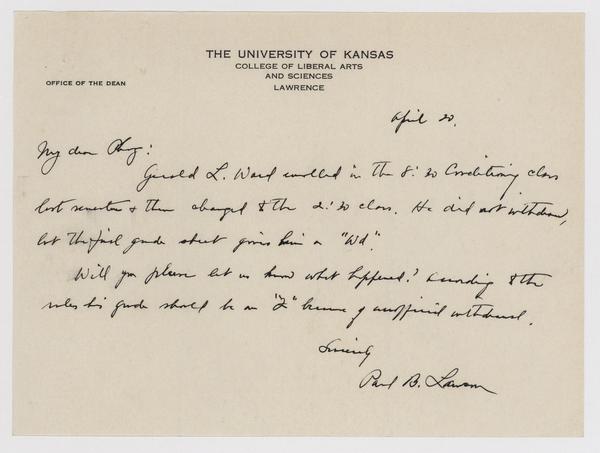 THE UNIVERSITY OF KANSAS
COLLEGE OF LIBERAL ARTS
AND SCIENCES
LAWRENCE
OFFICE OF THE DEAN
April 20.
My dear Phog:
Gerald L. Ward enrolled in the 8:30 Conditioning class
last semester & then changed to the 2:30 class. He did not withdraw,
but the final grade sheet gives him a "Wd".
Will you please let us know what happened? According to the
rules his grade should be an "F" because of unofficial withdrawal.
Sincerely
Paul B. Lawson